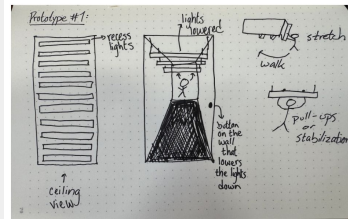 Prototype #1:
recess
lights
ceiling
view
lights
lowered
button
on the
wall
that
lowers
the lights
down
stretch
walk
pull-ups
or
stabilization
2